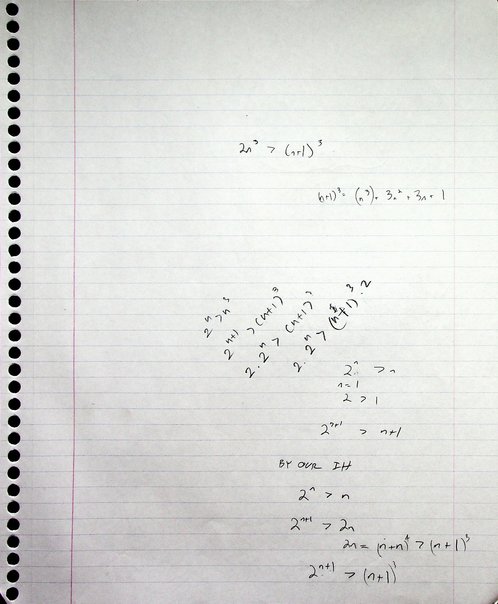 2n³ > (n+1)³
(n+1)³ = (n³) + 3n² + 3n + 1
2ⁿ > n³
2ⁿ⁺¹ > (n+1)³
2·2ⁿ > (n+1)³
2·2ⁿ >
2ⁿ > n
n=1
2 > 1
2ⁿ⁺¹ > n+1
BY OUR IH
2ⁿ > n
2ⁿ⁺¹ > 2n
2n = (n+n) > (n+1)
2ⁿ⁺¹ > (n+1)